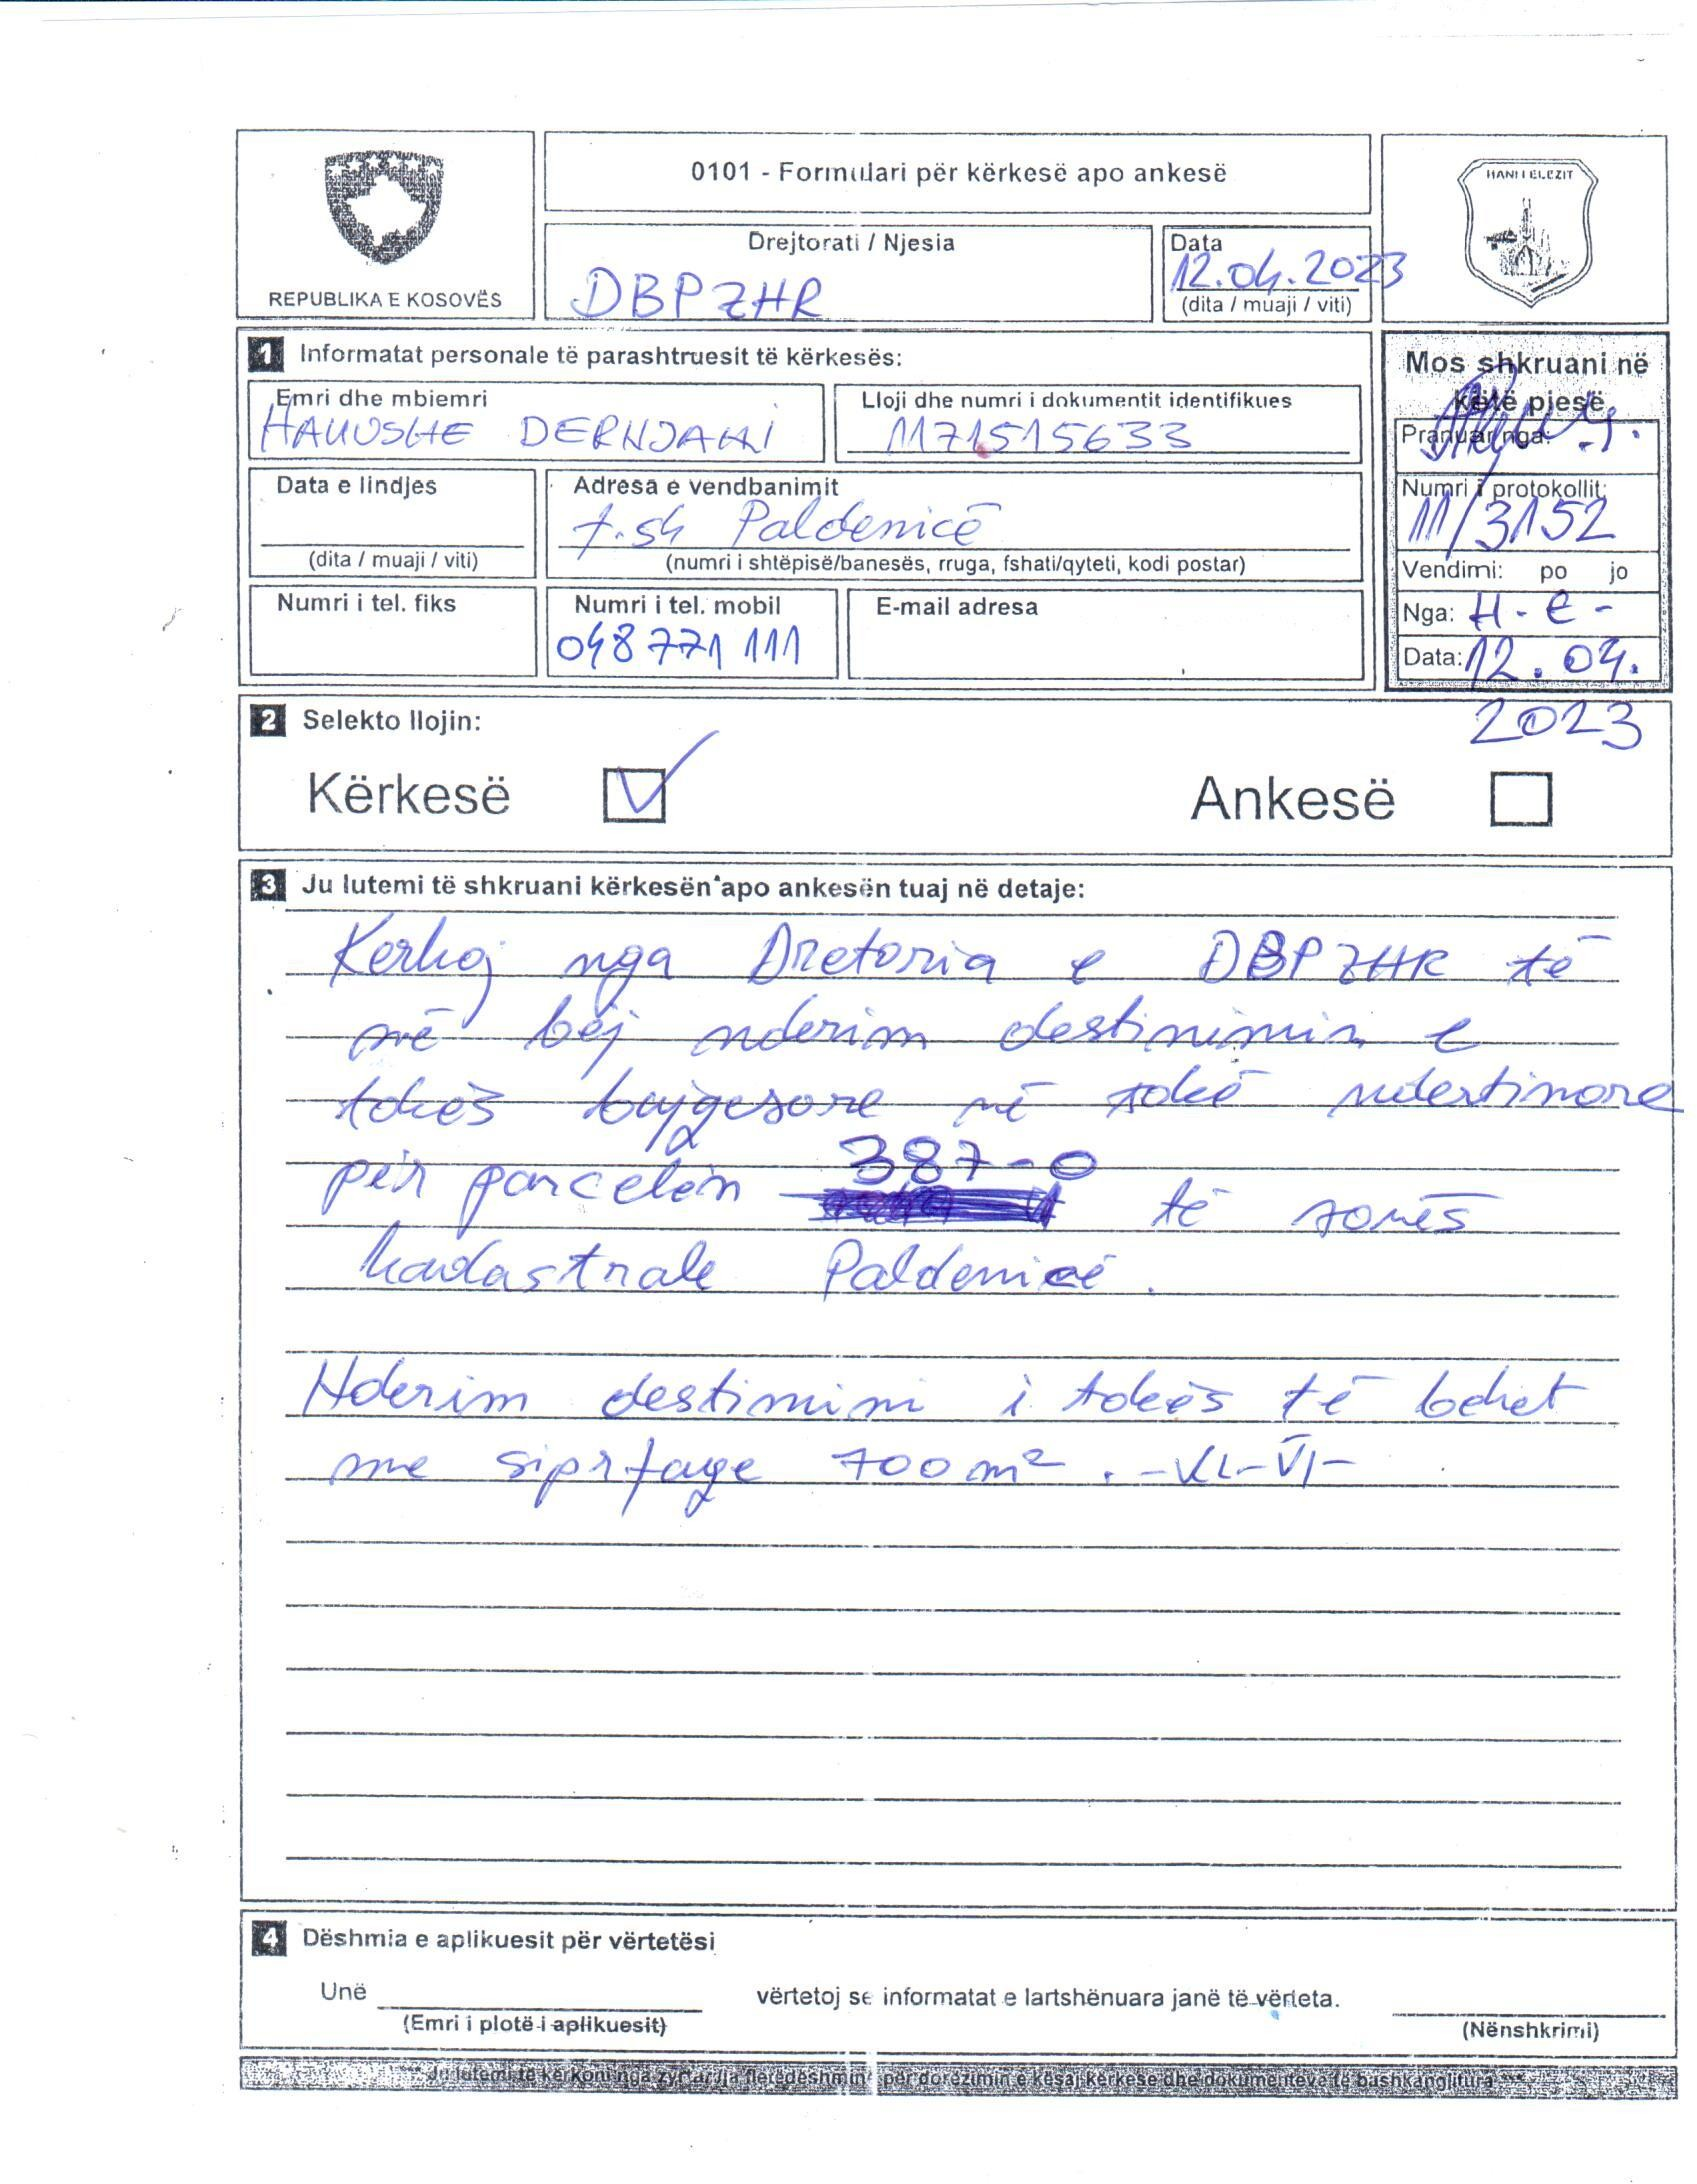 0101 - Formulari për kërkesë apo ankesë
HANI I ELEZIT
REPUBLIKA E KOSOVËS
Drejtorati / Njesia
DBPZHR
Data
12.04.2023
(dita / muaji / viti)
1 Informatat personale të parashtruesit të kërkesës:
Emri dhe mbiemri
DERNJANI
Lloji dhe numri i dokumentit identifikues
1171515633
Data e lindjes
(dita / muaji / viti)
Adresa e vendbanimit
f.sh Paldenicë
(numri i shtëpisë/banesës, rruga, fshati/qyteti, kodi postar)
Numri i tel. fiks
Numri i tel. mobil
048 771 111
E-mail adresa
Mos shkruani në
këtë pjesë
Pranuar nga:
Numri i protokollit:
11/3152
Vendimi: po jo
Nga: H-E-
Data: 12.04.
2023
2 Selekto llojin:
Kërkesë
Ankesë
3 Ju lutemi të shkruani kërkesën apo ankesën tuaj në detaje:
Kerkoj nga Dretoria e DBPZHR të
më bëj nderim destinimin e
tokës bujqesore në tokë ndertimore
për parcelën 387-0 të zonës
kadastrale Paldenicë.
Nderim destinimi i tokës të behet
me siprfaqe 700 m².
4 Dëshmia e aplikuesit për vërtetësi
Unë
vërtetoj se informatat e lartshënuara janë të vërteta.
(Emri i plotë i aplikuesit)
(Nënshkrimi)
Ju lutemi të kërkoni nga zyrtari/ja fletëdëshmin për dorëzimin e kësaj kërkese dhe dokumenteve të bashkangjitura